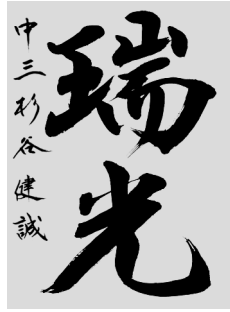 瑞光
中三杉谷健誠